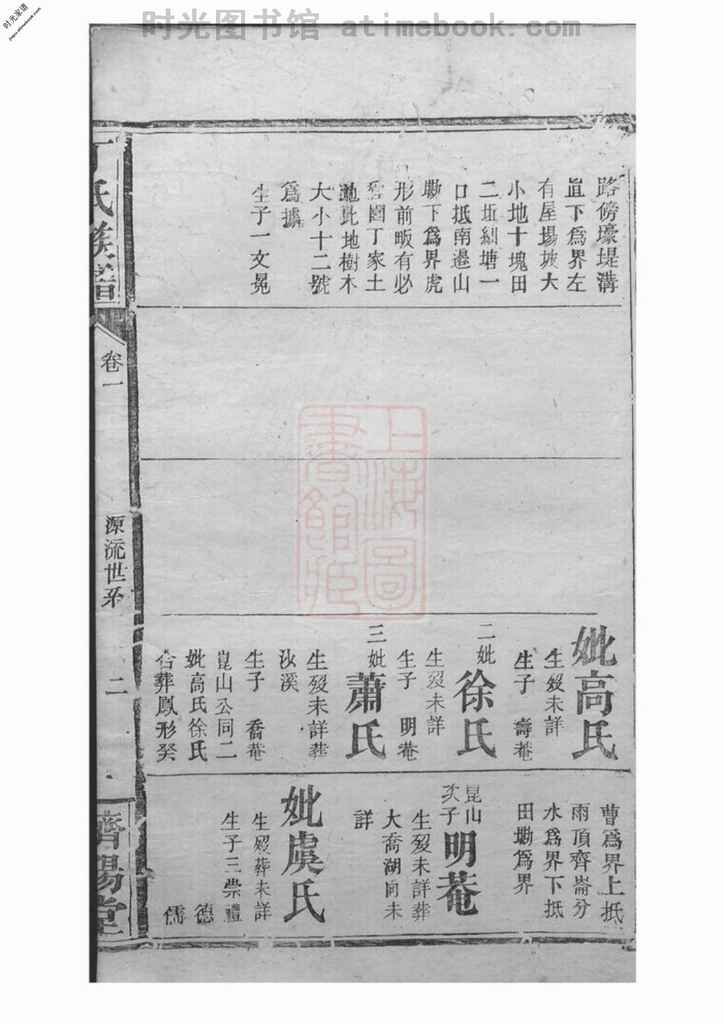 时光图书馆 atimebook.com
时光家谱
路傍壕堤溝
直下爲界左
有屋塲坡大
小地十塊田
二坵糾塘一
口坻南邊山
墈下爲界虎
形前畈有必
丁家土
此地樹木
大小十二號
爲據
生子一文冕
妣高氏
生歿未詳
生子 壽菴
二妣徐氏
生歿未詳
生子 明菴
三妣蕭氏
生歿未詳葬
汝溪
生子 喬菴
崑山公同二
妣高氏徐氏
合葬鳳形癸
曹爲界上抵
雨頂齊崙分
水爲界下抵
田墈爲界
昆山次子明菴
生歿未詳葬
大喬湖向未
詳
妣虞氏
生歿葬未詳
生子三崇禮
德
儒
丁氏族譜
卷一
源流世系
二
濟陽堂
上海圖書館藏